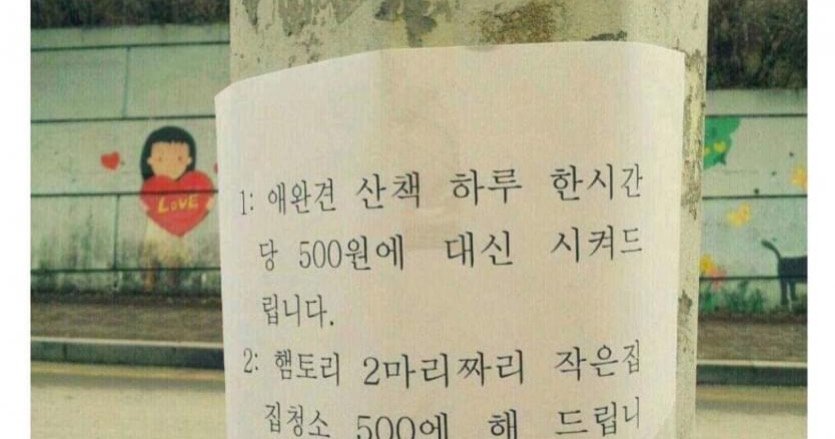 LOVE
1: 애완견 산책 하루 한시간
당 500원에 대신 시켜드
립니다.
2: 햄토리 2마리짜리 작은집
집청소 500에 해 드립니